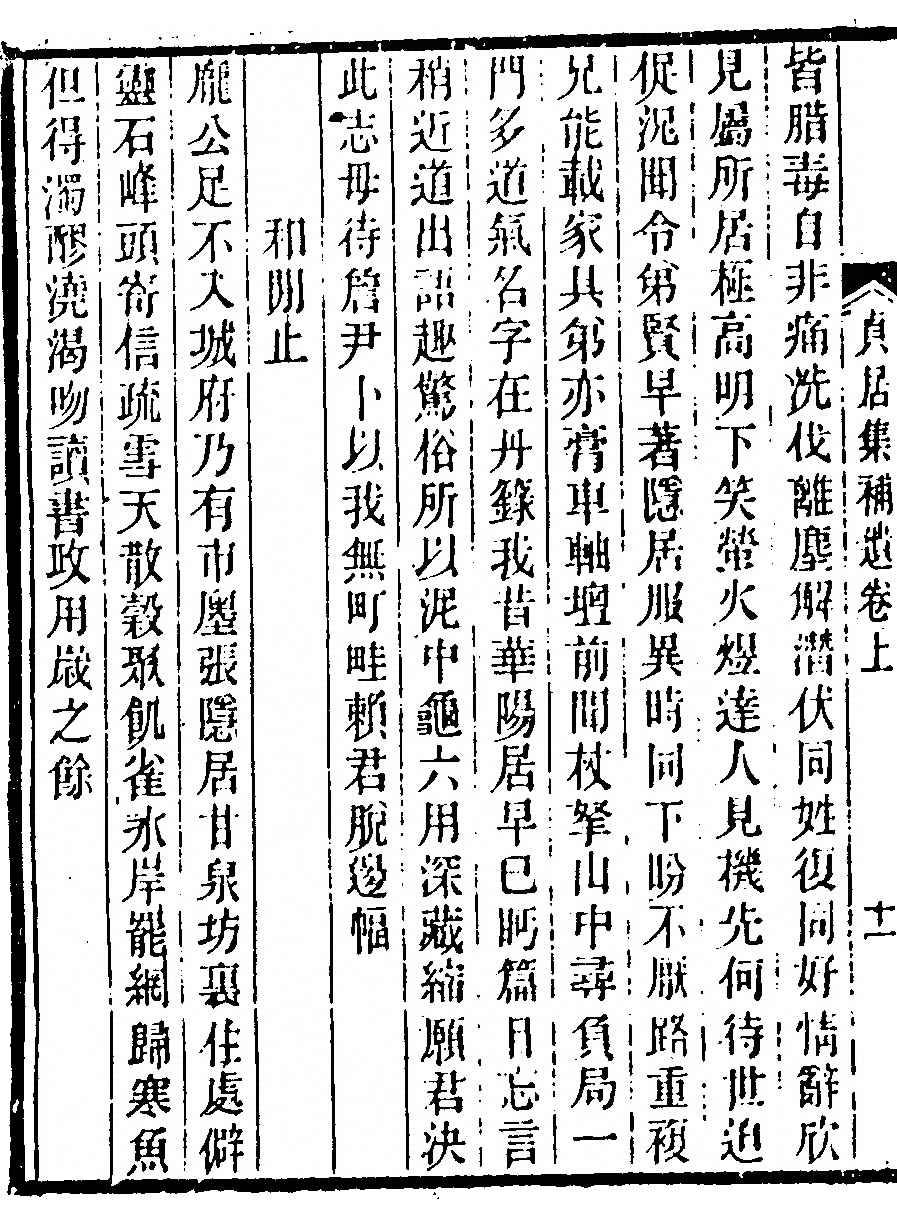 貞居集補遺卷上
十一
皆腊毒自非痛洗伐離塵解潛伏同姓復同好情辭欣
見屬所居極高明下笑螢火煜達人見機先何待世迫
促況聞令弟賢早著隱居服異時同下盼不厭路重複
兄能載家具弟亦膏車軸壇前閒杖拏山中尋負局一
門多道氣名字在丹籙我昔華陽居早已眄篇目忘言
稍近道出語趣驚俗所以泥中龜六用深藏縮願君決
此志毋待詹尹卜以我無町畦賴君脫邊幅
和閒止
龐公足不入城府乃有市廛張隱居甘泉坊裏住處僻
靈石峰頭寄信疏雪天散穀聚飢雀氷岸罷網歸寒魚
但得濁醪澆渴吻讀書政用歲之餘